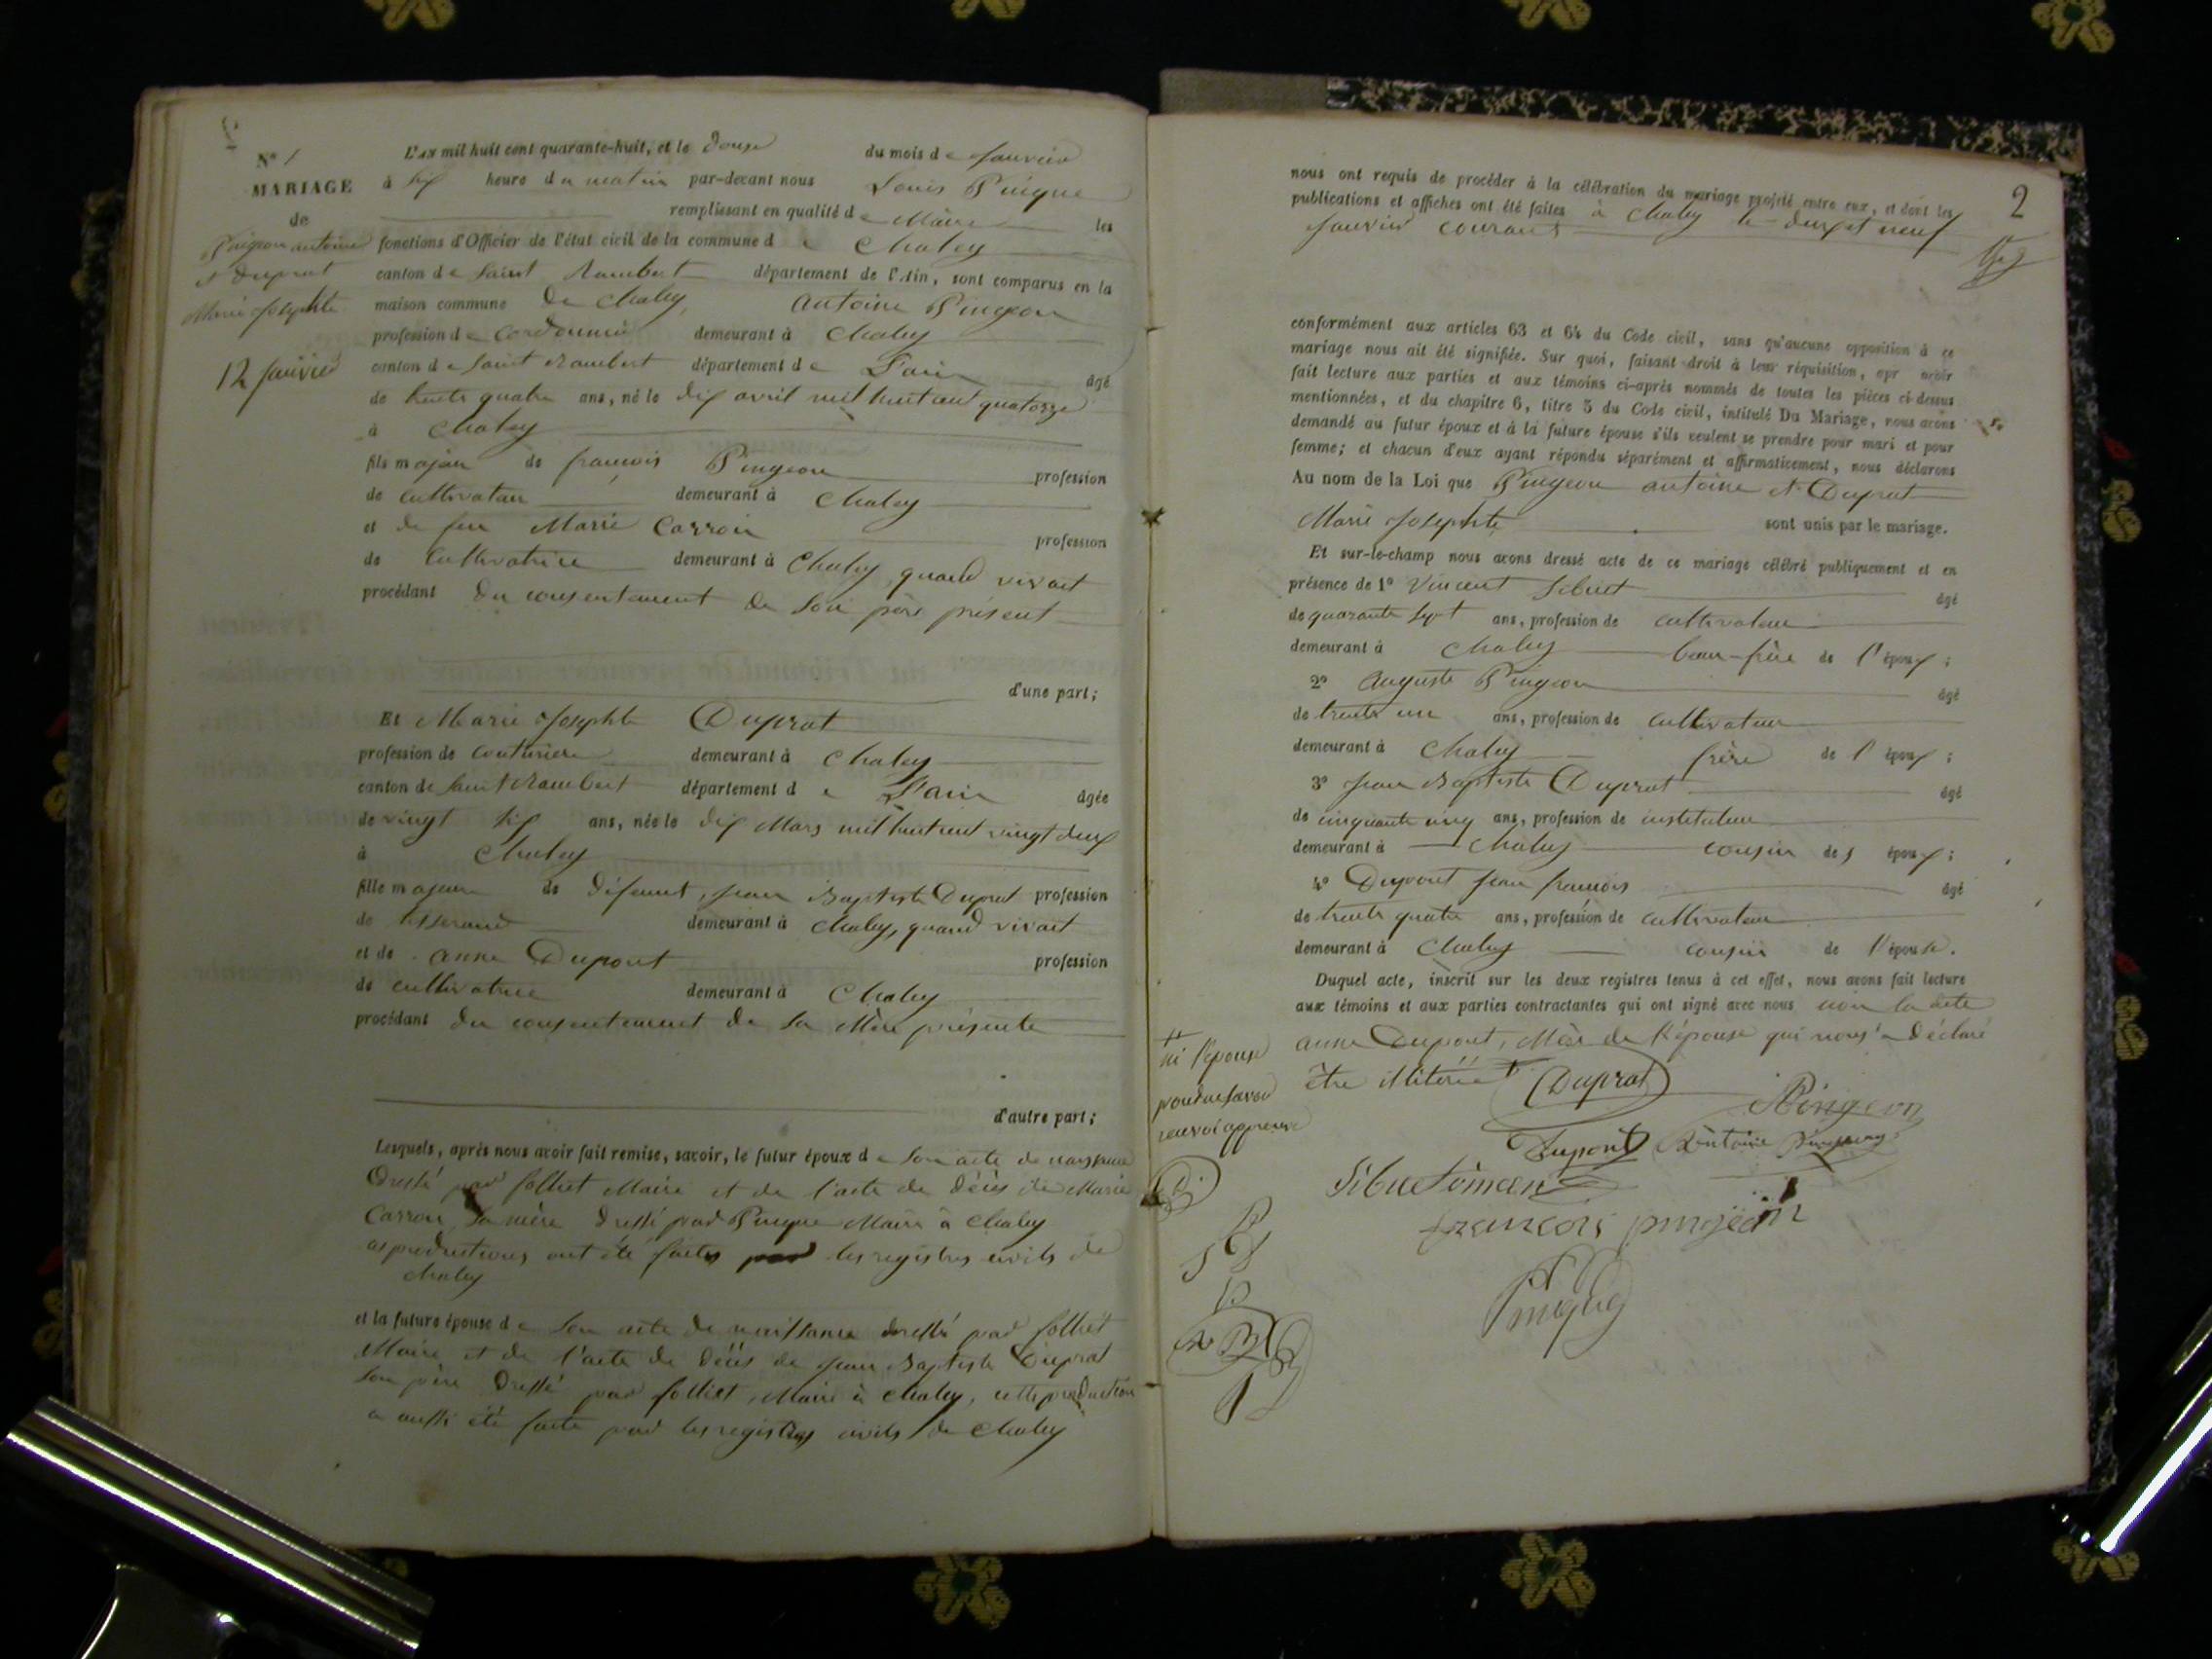 N° 1
MARIAGE
de
Pingeon antoine
et Duprat
Marie Josephte
12 Janvier
L'AN mil huit cent quarante-huit, et le Douze du mois de Janvier
à six heure du matin par-devant nous Louis Pingue
remplissant en qualité de Maire les
fonctions d'Officier de l'état civil de la commune de Chaley
canton de Saint Rambert département de l'Ain, sont comparus en la
maison commune de Chaley, Antoine Pingeon
profession de Cordonnier demeurant à Chaley
canton de Saint Rambert département de L'ain âgé
de trente quatre ans, né le dix avril mil huit cent quatorze
à Chaley
fils majeur de françois Pingeon profession
de cultivateur demeurant à Chaley
et de feu Marie Carron profession
de Cultivatrice demeurant à Chaley, quand vivait
procédant du consentement de son père présent
d'une part;
Et Marie Josephte Duprat
profession de couturière demeurant à Chaley
canton de Saint Rambert département de L'ain âgée
de vingt six ans, née le dix Mars mil huit cent vingt deux
à Chaley
fille majeure de défunt, Jean Baptiste Duprat profession
de tisserand demeurant à Chaley, quand vivait
et de anne Dupont profession
de cultivatrice demeurant à Chaley
procédant du consentement de sa Mère présente
d'autre part;
Lesquels, après nous avoir fait remise, savoir, le futur époux de son acte de naissance
Dressé par folliet Maire et de l'acte de décès de Marie
Carron, sa mère dressé par Pingue Maire à Chaley
ces productions ont été faites par les registres civils de
Chaley
et la future épouse de son acte de naissance dressé par folliet
Maire et de l'acte de décès de Jean Baptiste Duprat
son père dressé par folliet, Maire à Chaley, cette production
a aussi été faite par les registres civils de Chaley
2
nous ont requis de procéder à la célébration du mariage projeté entre eux, et dont les
publications et affiches ont été faites à Chaley le deux et neuf
Janvier courant
conformément aux articles 63 et 64 du Code civil, sans qu'aucune opposition à ce
mariage nous ait été signifiée. Sur quoi, faisant droit à leur réquisition, apr avoir
fait lecture aux parties et aux témoins ci-après nommés de toutes les pièces ci-dessus
mentionnées, et du chapitre 6, titre 5 du Code civil, intitulé Du Mariage, nous avons
demandé au futur époux et à la future épouse s'ils veulent se prendre pour mari et pour
femme; et chacun d'eux ayant répondu séparément et affirmativement, nous déclarons
Au nom de la Loi que Pingeon antoine et Duprat
Marie Josephte sont unis par le mariage.
Et sur-le-champ nous avons dressé acte de ce mariage célébré publiquement et en
présence de 1° Vincent Sibuet âgé
de quarante sept ans, profession de cultivateur
demeurant à Chaley beau-frère de l'époux;
2° Auguste Pingeon âgé
de trente un ans, profession de cultivateur
demeurant à Chaley frère de l'époux;
3° Jean Baptiste Duprat âgé
de cinquante cinq ans, profession de instituteur
demeurant à Chaley cousin des époux;
4° Dupont Jean françois âgé
de trente quatre ans, profession de cultivateur
demeurant à Chaley cousin de l'épouse.
Duquel acte, inscrit sur les deux registres tenus à cet effet, nous avons fait lecture
aux témoins et aux parties contractantes qui ont signé avec nous non la dite
anne Dupont, Mère de l'épouse qui nous a déclaré
être illitérée
ni l'épouse
pour ne savoir
renvoi approuvé
Duprat
Pingeon
Dupont Antoine Pingeon
françois pingeon
Pingue